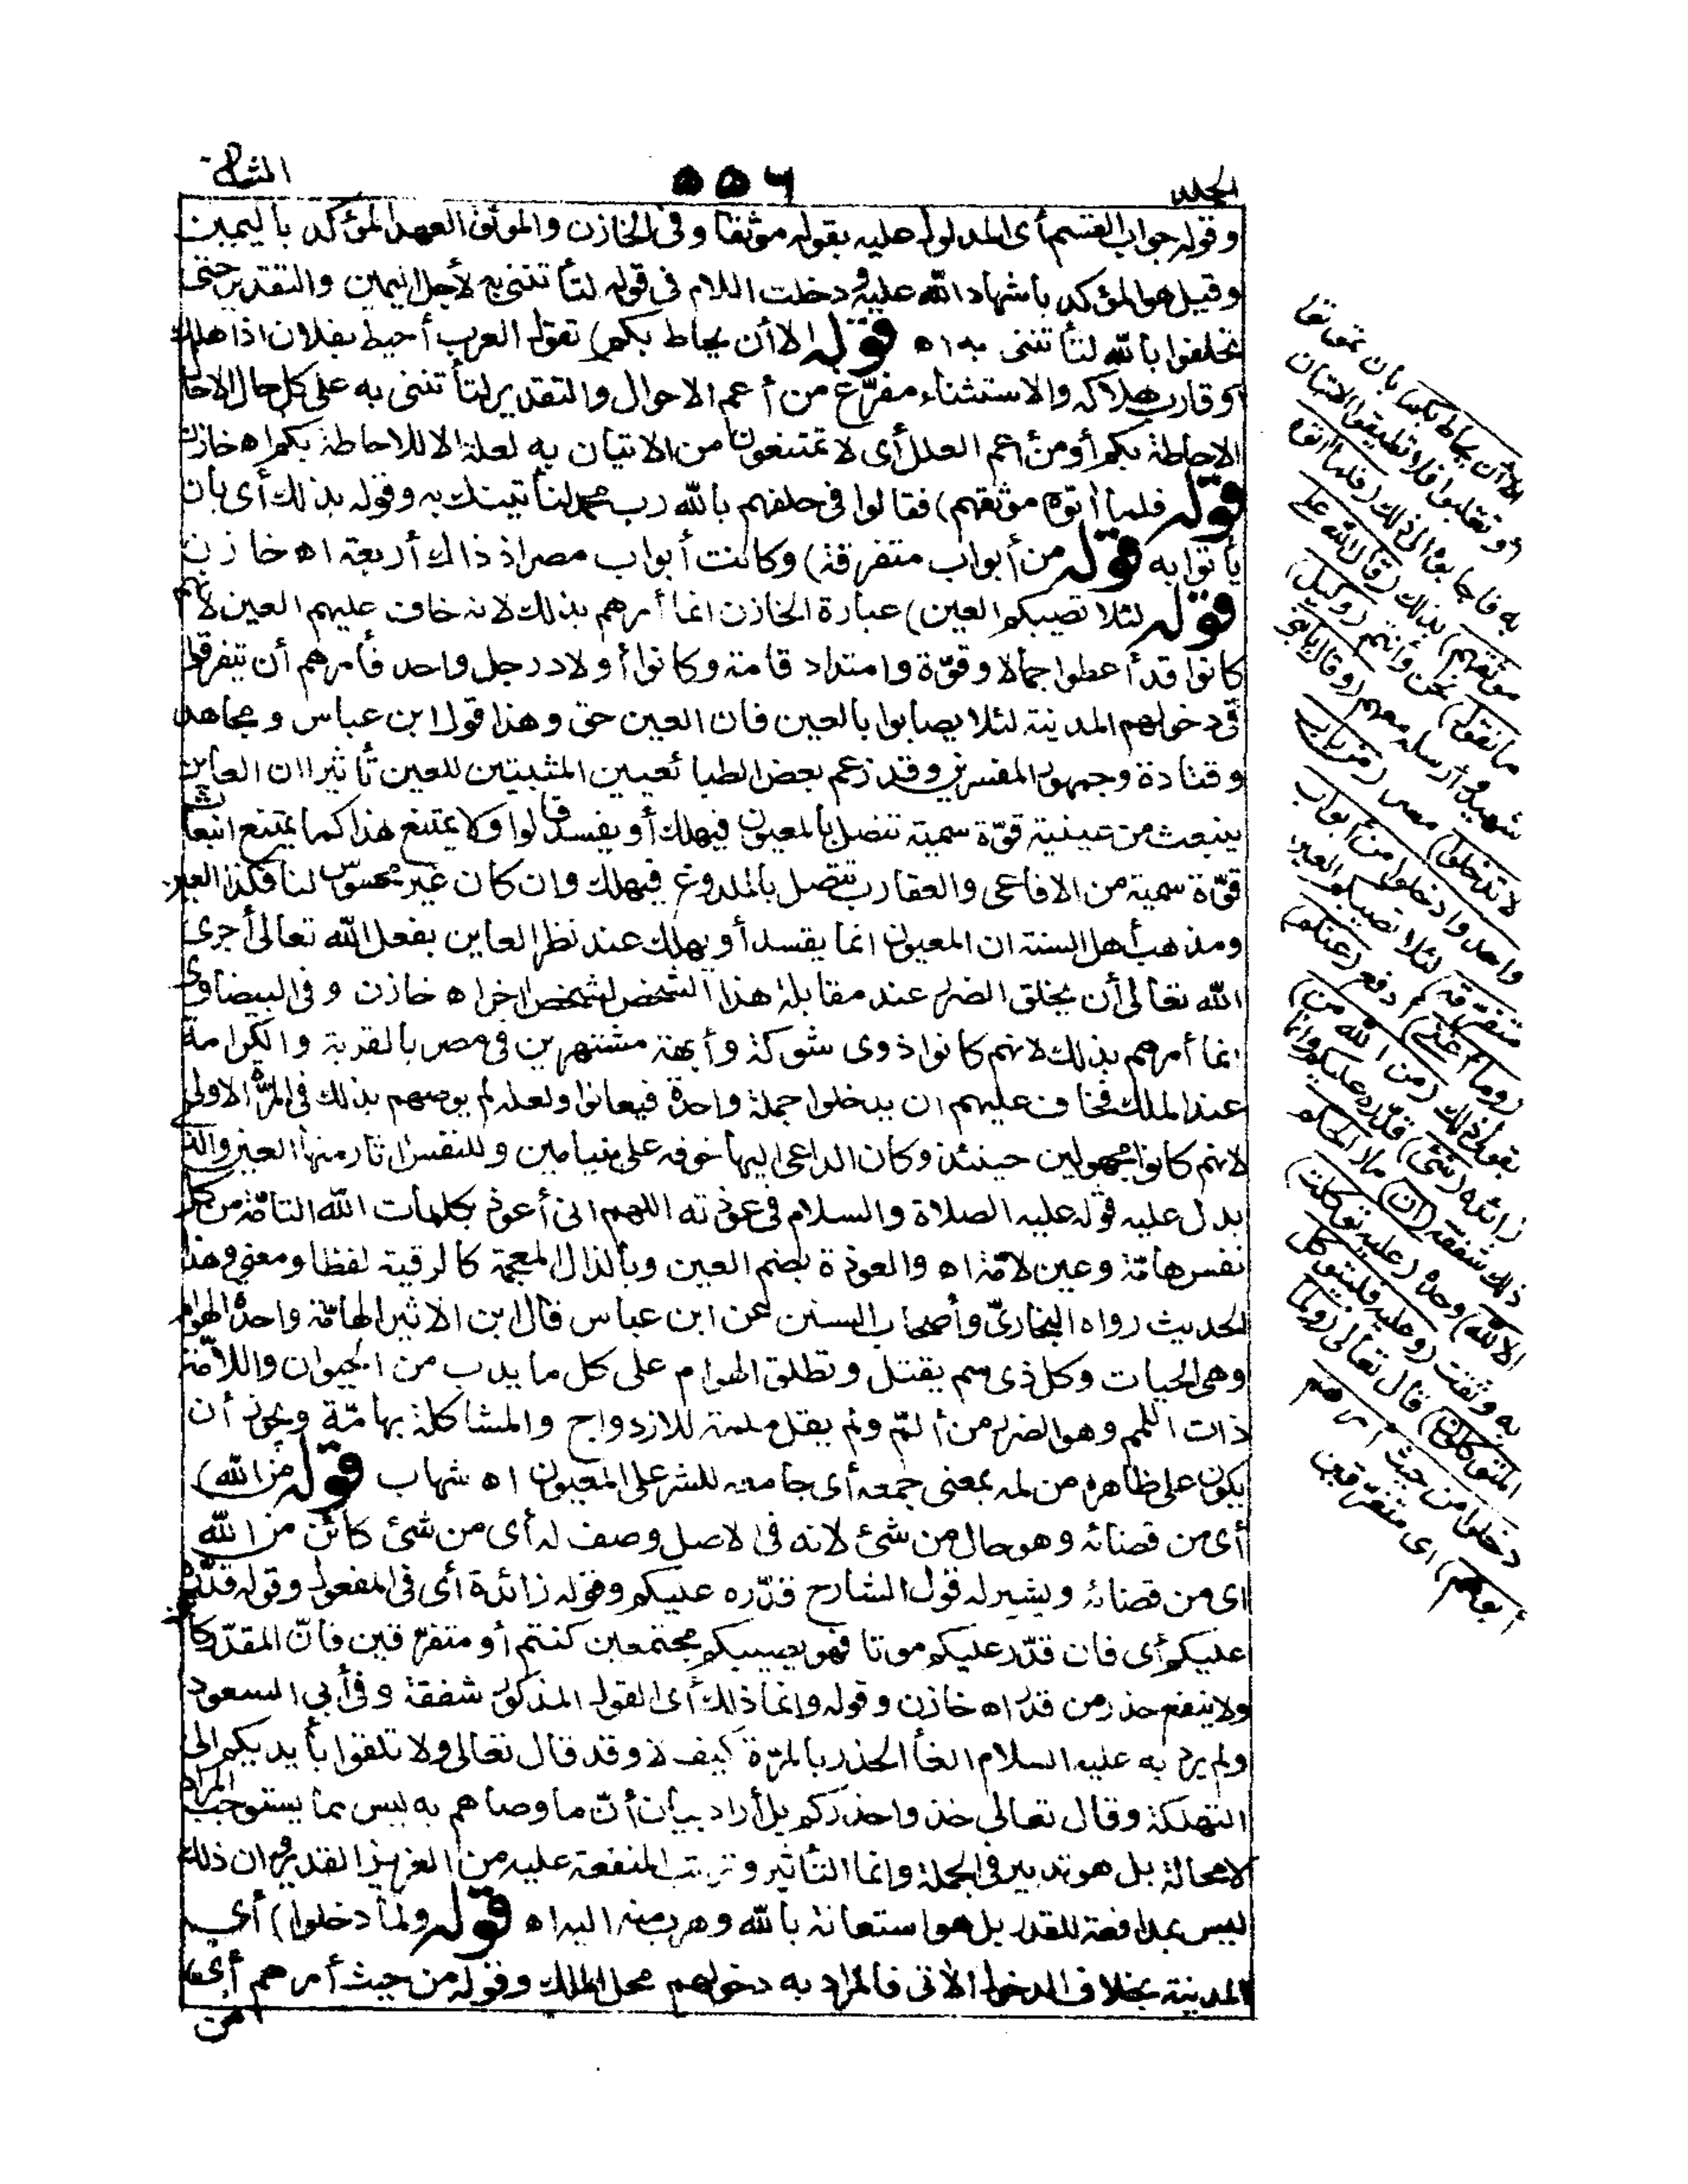 الجلد
٥٥٦
الثانى
وقوله جواب القسم أى المدلول عليه بقوله موثقا وفى الخازن والموثق العهد المؤكد باليمين
وقيل هو المؤكد باشهاد الله عليه ودخلت اللام فى قوله لتأتننى به لأجل اليمين والتقدير حتى
تحلفوا بالله لتأتننى به اه قوله الا أن يحاط بكم) تقول العرب أحيط بفلان اذا هلك
أو قارب هلاكه والاستثناء مفرّغ من أعم الاحوال والتقدير لتأتننى به على كل حال الا حال
الاحاطة بكم أو من أعم العلل أى لا تمتنعون من الاتيان به لعلة الا للاحاطة بكم اه خازن
قوله فلما آتوه موثقهم) فقالوا فى حلفهم بالله رب محمد لنأتينك به وقوله بذلك أى بان
يأتوا به قوله من أبواب متفرقة) وكانت أبواب مصر اذ ذاك أربعة اه خازن
قوله لئلا تصيبكم العين) عبارة الخازن انما أمرهم بذلك لانه خاف عليهم العين لأنهم
كانوا قد أعطوا جمالا وقوّة وامتداد قامة وكانوا أولاد رجل واحد فأمرهم أن يتفرقوا
فى دخولهم المدينة لئلا يصابوا بالعين فان العين حق وهذا قول ابن عباس ومجاهد
وقتادة وجمهور المفسرين وقد زعم بعض الطبائعيين المثبتين للعين تأثيرا ان العاين
ينبعث من عينيه قوّة سمية تتصل بالمعيون فيهلك أو يفسد قالوا ولا يمتنع هذا كما يمتنع انبعاث
قوّة سمية من الافاعى والعقارب تتصل بالملدوغ فيهلك وان كان غير محسوس لنا فكذا العين
ومذهب أهل السنة ان المعيون انما يفسد أو يهلك عند نظر العاين بفعل الله تعالى أجرى
الله تعالى أن يخلق الضرر عند مقابلة هذا الشخص لشخص اخر اه خازن وفى البيضاوى
انما أمرهم بذلك لانهم كانوا ذوى شوكة وأبهة مشتهرين فى مصر بالقربة والكرامة
عند الملك فخاف عليهم ان يدخلوا جملة واحدة فيعانوا ولعله لم يوصهم بذلك فى المرّة الاولى
لانهم كانوا مجهولين حينئذ وكان الداعى اليها خوفه على بنيامين وللنفس اثار منها العين والذى
يدل عليه قوله عليه الصلاة والسلام فى عوذته اللهم انى أعوذ بكلمات الله التامّة من كل
نفس هامّة وعين لامّة اه والعوذة بضم العين وبالذال المعجمة كالرقية لفظا ومعنى وهذا
الحديث رواه البخارىّ وأصحاب السنن عن ابن عباس قال ابن الاثير الهامّة واحدة الهوام
وهى الحيات وكل ذى سم يقتل وتطلق الهوام على كل ما يدب من الحيوان واللامّة
ذات اللمم وهو الضرر من ألمّ ولم يقل ملمة للازدواج والمشاكلة بهامّة ويجوز أن
يكون على ظاهره من لمه بمعنى جمعه أى جامعه للشر على المعيون اه شهاب قوله من الله)
أى من قضائه وهو حال من شئ لانه فى لاصل وصف له أى من شئ كائن من الله
اى من قضائه ويشير له قول الشارح قدّره عليكم وقوله زائدة أى فى المفعول وقوله قدّره
عليكم أى فان قدّر عليكم موتا فهو يصيبكم مجتمعين كنتم أو متفرّقين فانّ المقدّر كائن
ولا ينفع حذر من قدر اه خازن وقوله وانما ذلك أى القول المذكور شفقة وفى أبى السعود
ولم يرد به عليه السلام الغأ الحذر بالمرّة كيف لا وقد قال تعالى ولا تلقوا بأيديكم الى
التهلكة وقال تعالى خذوا حذركم بل أراد بيان أنّ ما وصاهم به ليس مما يستوجب المراد
لا محالة بل هو تدبير فى الجملة وانما التأثير وترتب المنفعة عليه من العزيز القدير وان ذلك
ليس بمدافعة للقدر بل هو استعانة بالله وهرب منه اليه اه قوله ولما دخلوا) أى
المدينة بخلاف الدخول الآتى فالمراد به دخولهم محل الملك وقوله من حيث أمرهم أى
من
الا أن يحاط بكم) بان تموتوا
أو تغلبوا فلا تطيقوا الاتيان
به فاجابوه الى ذلك (فلما آتوه
موثقهم) بذلك (قال الله على
ما نقول) نحن وأنتم (وكيل)
شهيد وأرسله معهم (وقال يابنى
لا تدخلوا) مصر (من باب
واحد وادخلوا من أبواب
متفرّقة) لئلا تصيبكم العين
(وما أغنى) ادفع (عنكم)
بقولى ذلك (من الله من)
زائدة (شئ) قدّره عليكم وانما
ذلك شفقة (ان) ما (الحكم
الا لله) وحده (عليه توكلت)
به وثقت (وعليه فليتوكل
المتوكلون) قال تعالى (ولما
دخلوا من حيث أمرهم
أبوهم) اى متفرّقين